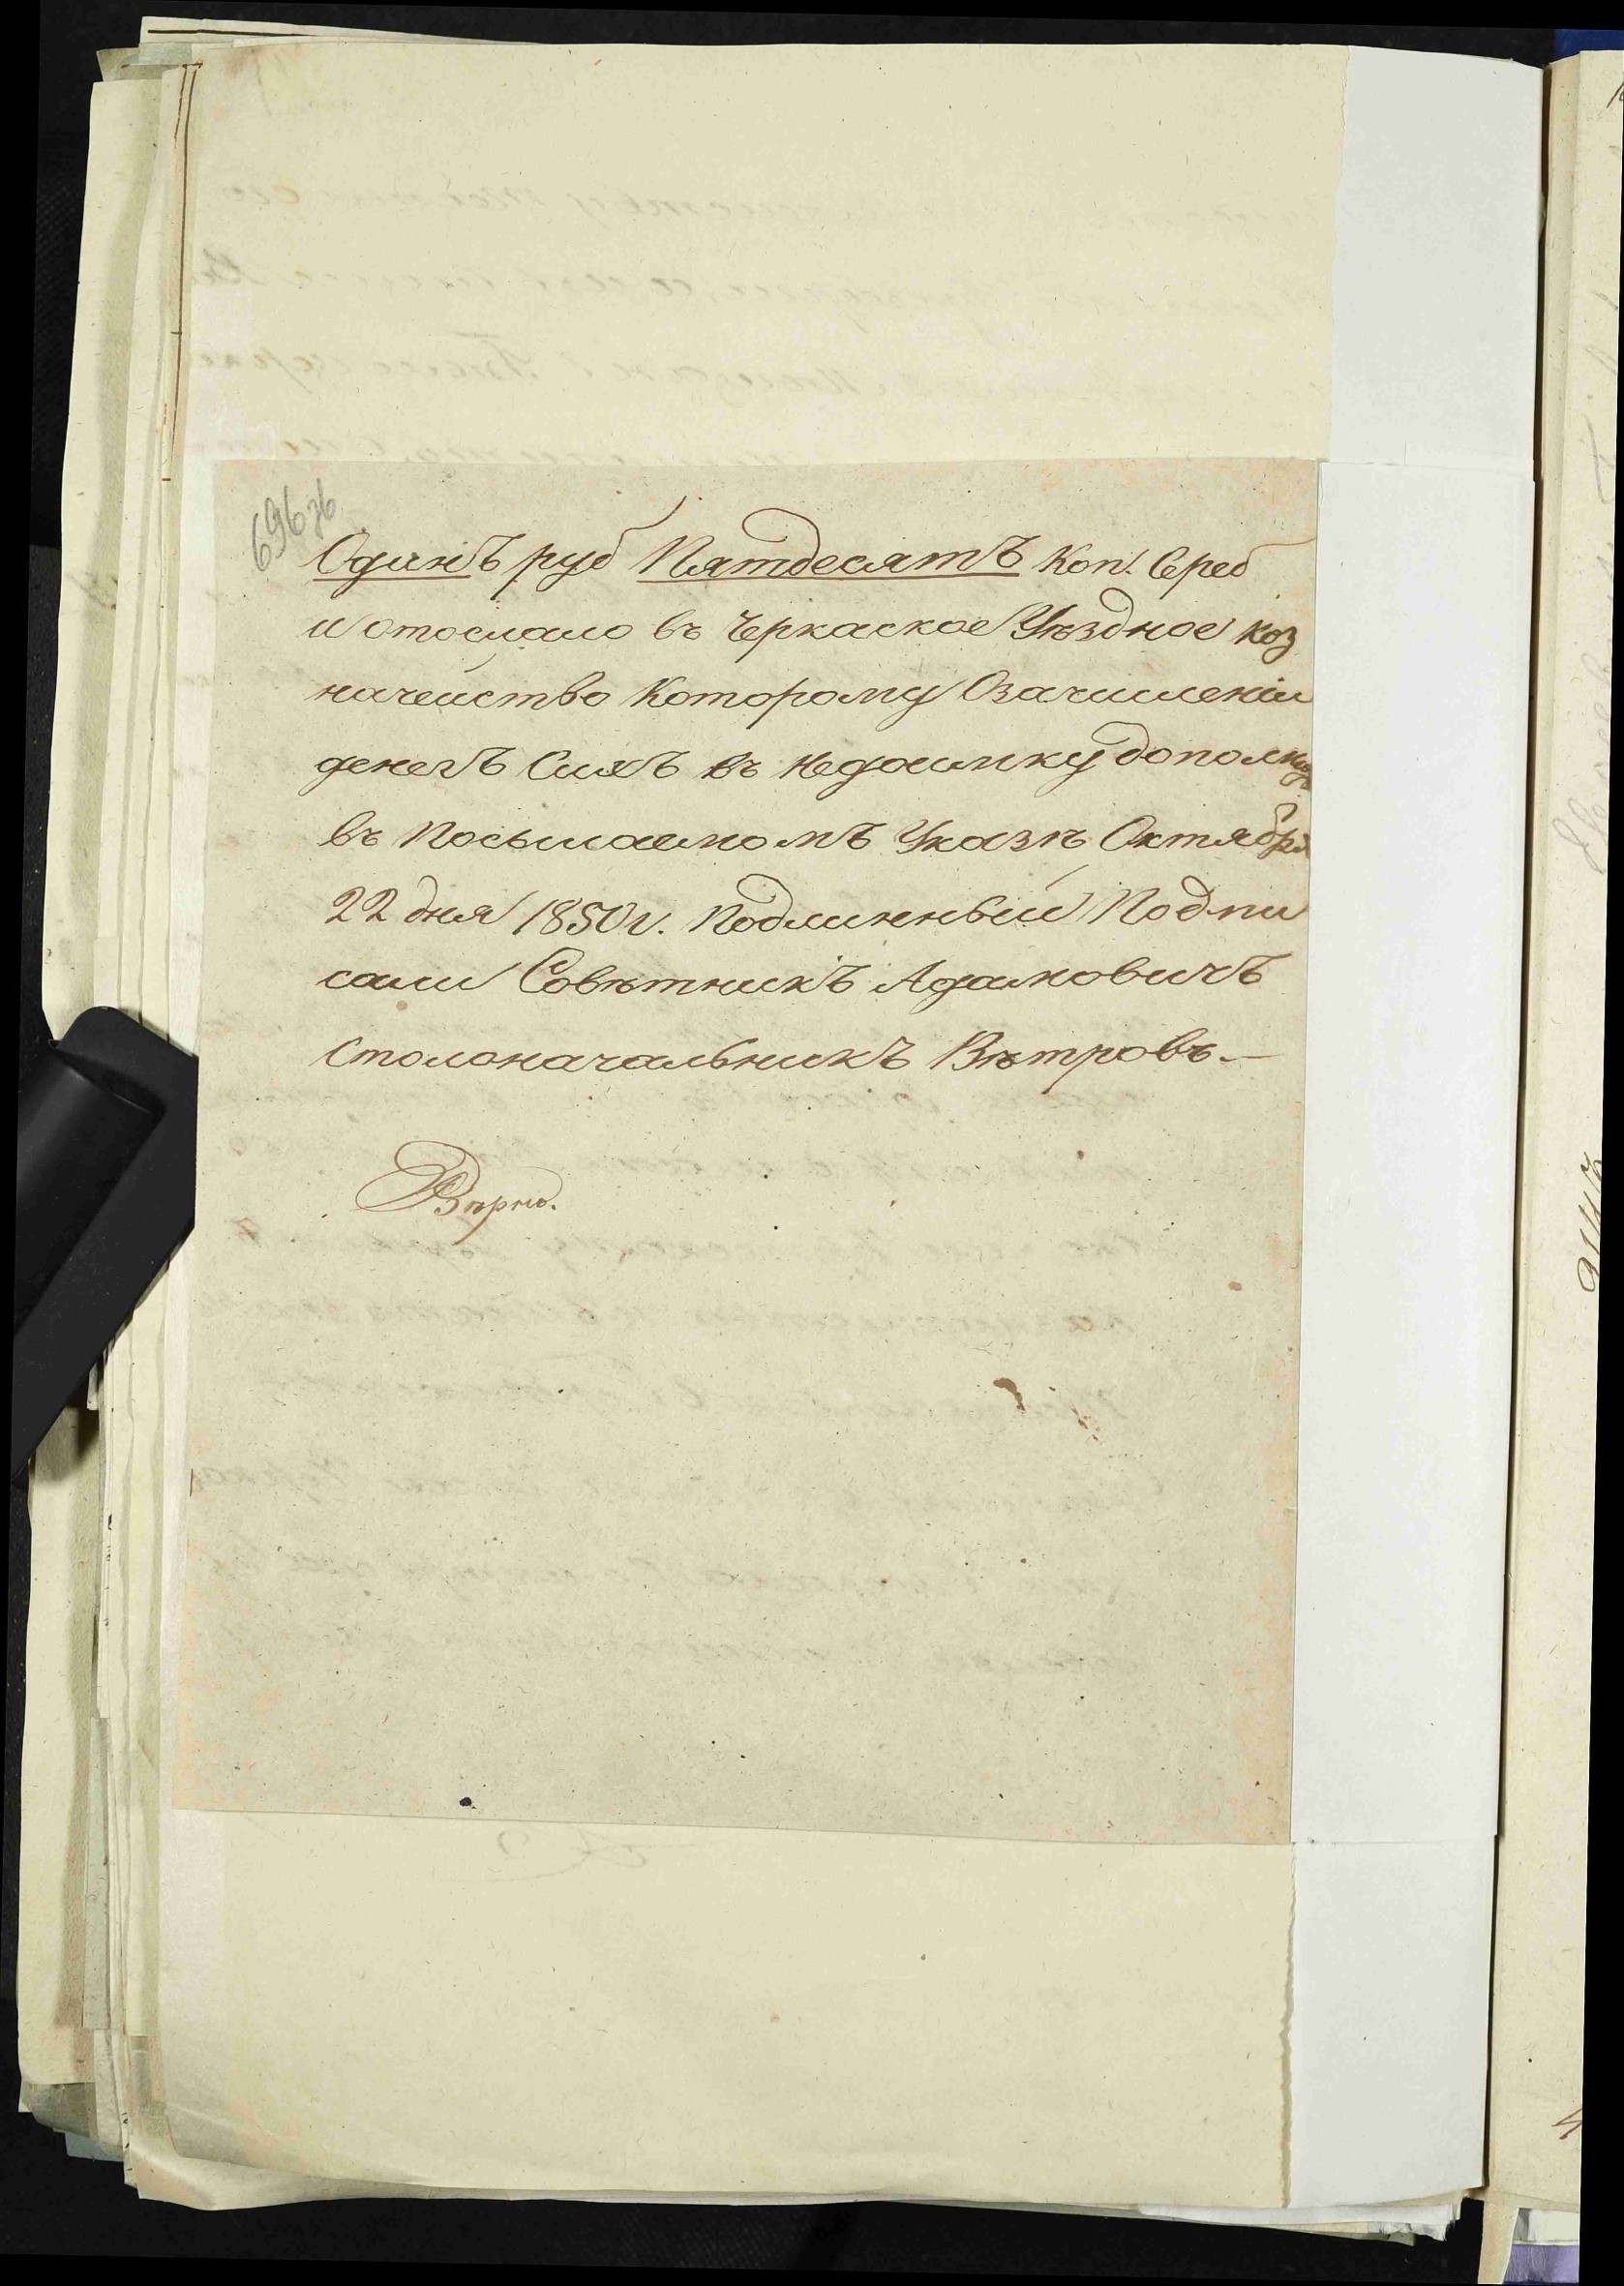 696зв
Одинъ руб Пятдесятъ Коп. Сереб
и отослало въ Черкаское Уѣздное каз
начейство Которому О зачисленіи
денегъ Сихъ въ недоимку дополне
въ Посылаемомъ Указѣ Октября
22 дня 1850 г. Подлинный Подпи
сали Совѣтникъ Адамовичъ
Столоначальникъ Вѣтровъ.—
Вѣрно.